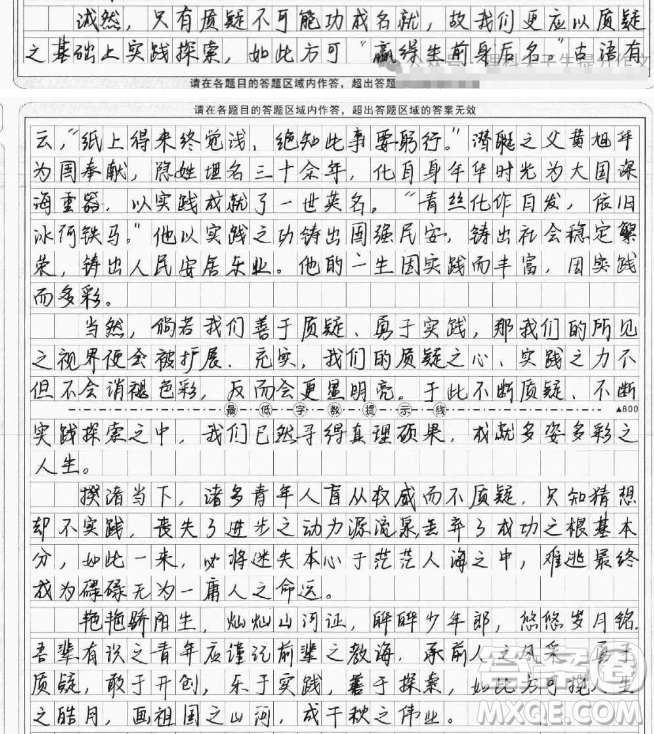 诚然，只有质疑不可能功成名就，故我们更应以质疑
之基础上实践探索，如此方可“赢得生前身后名。”古语有
请在各题目的答题区域内作答，超出答题
请在各题目的答题区域内作答，超出答题区域的答案无效
云，“纸上得来终觉浅，绝知此事要躬行。”潜艇之父黄旭华
为国奉献，隐姓埋名三十余年，化自身年华时光为大国深
海重器，以实践成就了一世英名。“青丝化作白发，依旧
冰河铁马。”他以实践之功铸出国强民安，铸出社会稳定繁
荣，铸出人民安居乐业。他的一生因实践而丰富，因实践
而多彩。
当然，倘若我们善于质疑、勇于实践，那我们的所见
之视界便会被扩展、充实，我们的质疑之心、实践之力不
但不会消褪色彩，反而会更显明亮。于此不断质疑、不断
最低字数提示线 ▲800
实践探索之中，我们已然寻得真理硕果，成就多姿多彩之
人生。
揆诸当下，诸多青年人盲从权威而不质疑，只知猜想
却不实践，丧失了进步之动力源流泉，丢弃了成功之根基本
分，如此一来，必将迷失本心于茫茫人海之中，难逃最终
成为碌碌无为一庸人之命运。
艳艳骄阳生，灿灿山河证，晔晔少年郎，悠悠岁月铭。
吾辈有识之青年应谨记前辈之教诲，承前人之风采，勇于
质疑，敢于开创，乐于实践，善于探索，如此方可揽人生
之皓月，画祖国之山河，成千秋之伟业。
MXQE.COM